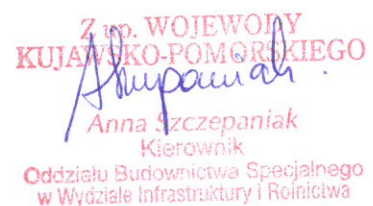 Z up. WOJEWODY
KUJAWSKO-POMORSKIEGO
Anna Szczepaniak
Kierownik
Oddziału Budownictwa Specjalnego
w Wydziale Infrastruktury i Rolnictwa